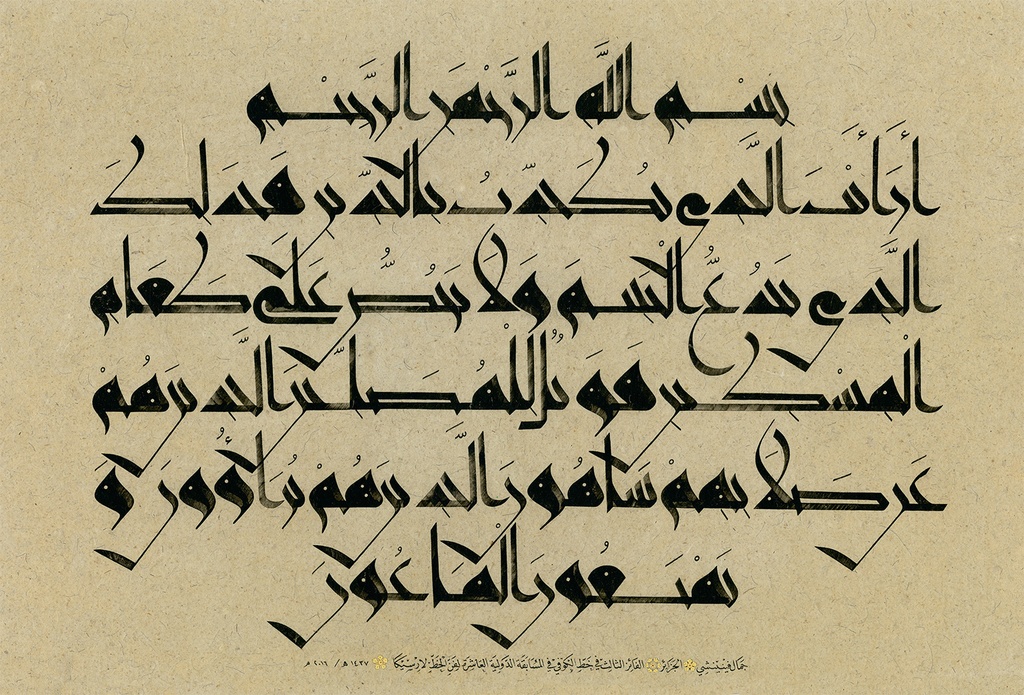 بسم الله الرحمن الرحيم
أرأيت الذي يكذب بالدين فذلك
الذي يدع اليتيم ولا يحض على طعام
المسكين فويل للمصلين الذين هم
عن صلاتهم ساهون الذين هم يراءون و
يمنعون الماعون
الجزائر الفائز الثالث في خط الكوفي في المسابقة الدولية العاشرة لفن الخط لارسيكا ١٤٣٧ هـ / ٢٠١٦ م